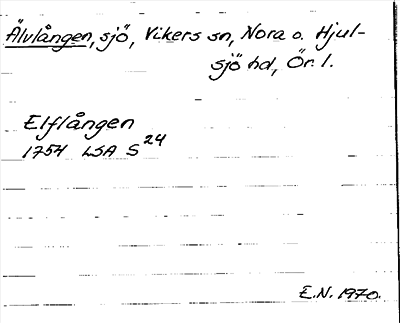 Älvlången, sjö, Vikers sn, Nora o. Hjul-
sjö hd, Ör. l.
Elflången
1754 LSA S 24
E.N. 1970.